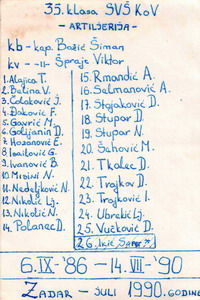 35. klasa SVŠ KoV
- ARTILJERIJA -
kb - kap. Božić Šiman
kv - -11- Špraje Viktor
1. Alajica T.
2. Balina V.
3. Čolaković J.
4. Đoković F.
5. Gavrić M.
6. Golijanin D.
7. Hozanović E.
8. Isailović G.
9. Ivanović B.
10. Mišini N.
11. Nedeljković N.
12. Nikolić Lj.
13. Nikolić N.
14. Polanec D.
15. Rmandić A.
16. Salmanović A.
17. Stojaković D.
18. Stupar D.
19. Stupar N.
20. Šahović M.
21. Tkalec D.
22. Trajkov D.
23. Trojković I.
24. Ubrekić Lj.
25. Vučković D.
26.
6.IX-'86 - 14.VII-'90
ZADAR - JULI 1990. GODINE